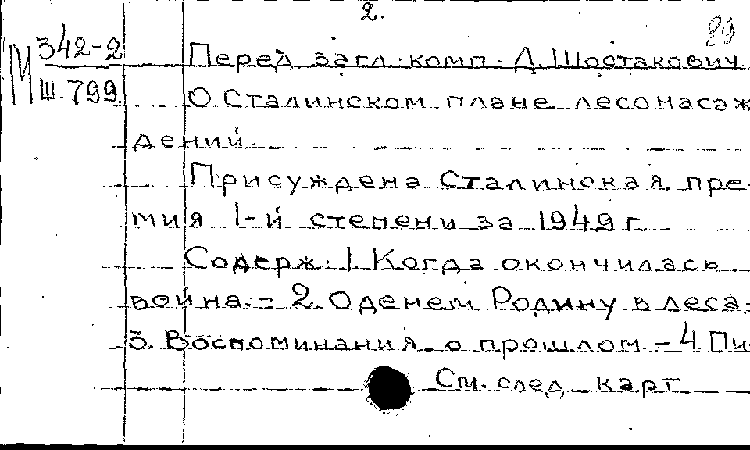 2.
89
М 342-2
Ш 799
Перед загл. комп. Д. Шостакович
О Сталинском плане лесонасаж
дений
Присуждена Сталинская пре-
мия 1-й степени за 1949 г
Содерж. 1. Когда окончилась
война. – 2. Оденем Родину в леса. –
3. Воспоминания о прошлом – 4 Пи
См. след карт